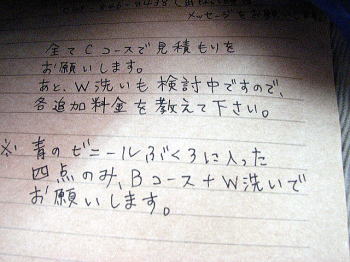 メッセージをお
全てCコースで見積もりを
お願いします。
あと、W洗いも検討中ですので、
各追加料金を教えて下さい。
※ 青のビニールぶくろに入った
四点のみ、Bコース+W洗いで
お願いします。